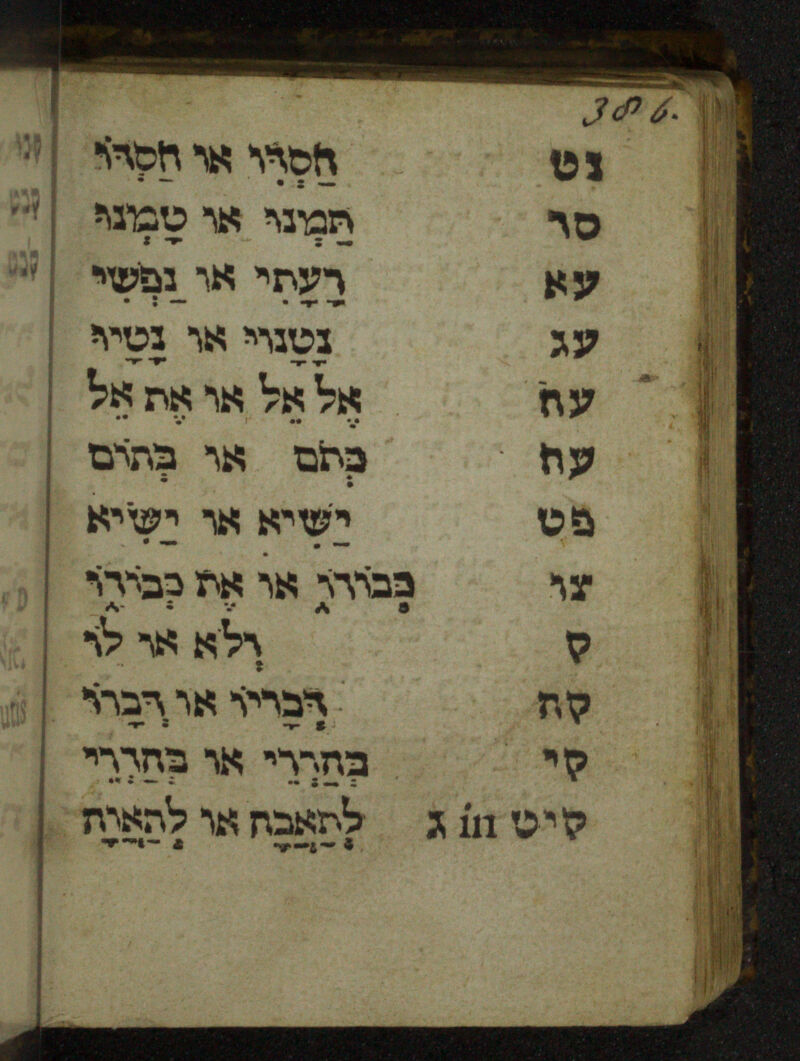 386.
נט חַסְדִּו או חַסְדּוֹ
סד תַּמְנוּ או טָמְנוּ
עא רָעָתִי או נַפְשִׁי
עג נָטָנוי או נָטָיוּ
עח אֶל אֵל או אֶת אֵל
עח כְּתֹם או בְּתוֹם
פט יַשִּׁיא או יַשִּׂיא
צו כְּבוֹדוֹ או אֶת כְּבוֹדוֹ
ק וְלֹא או לוֹ
קח דְּבָרָיו או דְּבָרוֹ
קי בְּהַרְרֵי או בְּהַדְרֵי
קיט in ג לְתַאֲבָה או לְתַאֲוָה